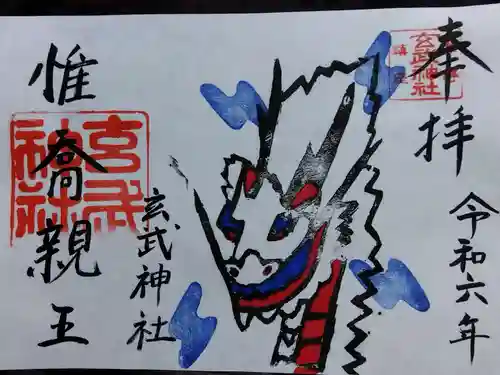 奉拝
令和六年
玄武神社
惟喬親王
玄武神社
玄武神社